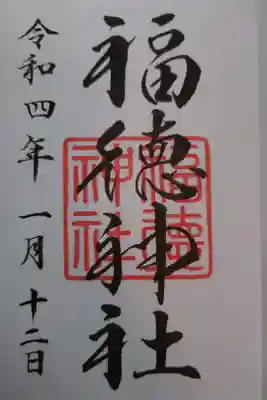 福徳神社
福徳神社
令和四年 一月 十二日